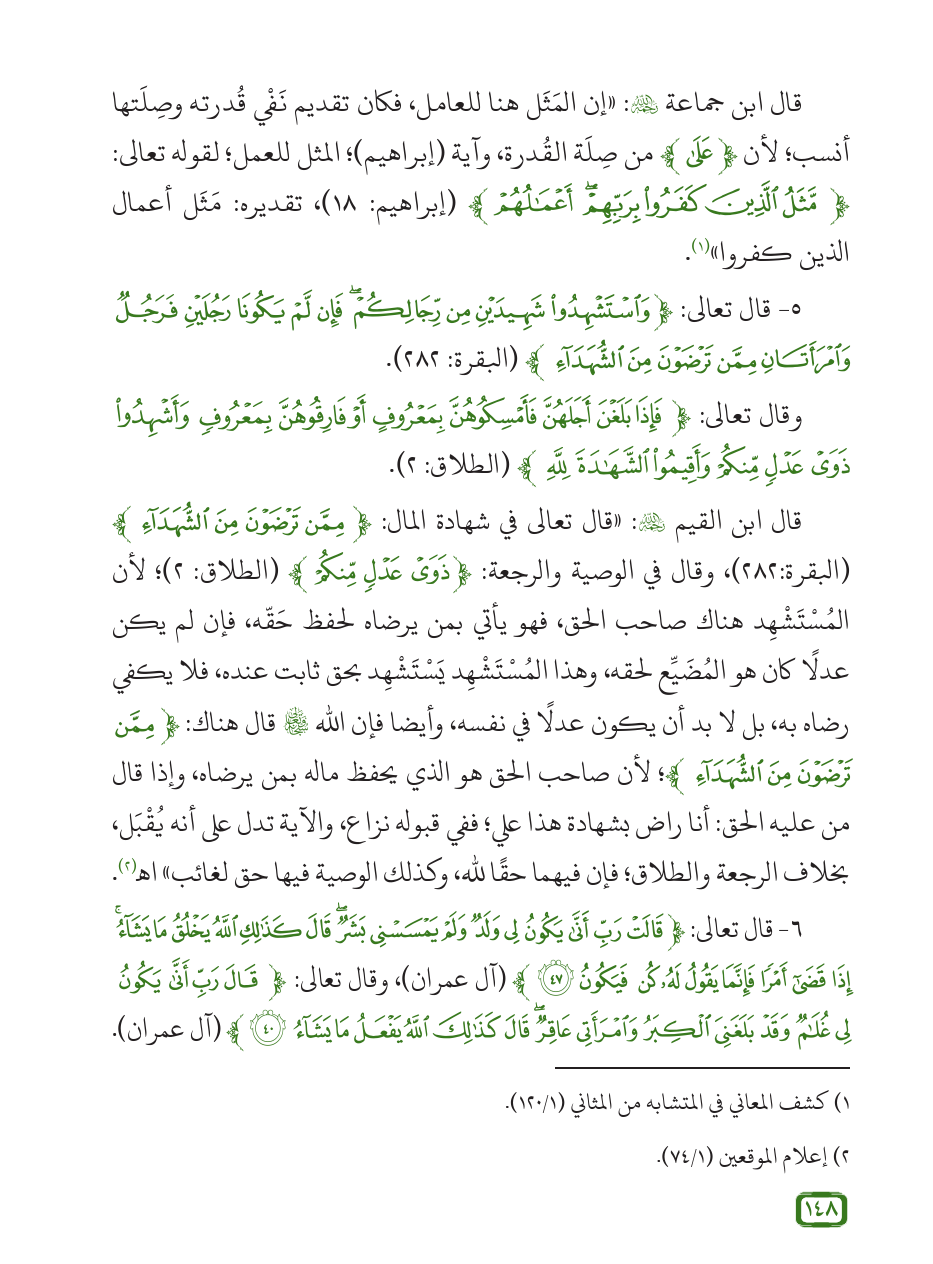 قال ابن جماعة رحمه الله: «إن المَثَل هنا للعامل، فكان تقديم نَفْي قُدرته وصِلَتها
أنسب؛ لأن ﴿عَلَىٰ﴾ من صِلَة القُدرة، وآية (إبراهيم)؛ المثل للعمل؛ لقوله تعالى:
﴿مَّثَلُ ٱلَّذِينَ كَفَرُواْ بِرَبِّهِمْۖ أَعْمَٰلُهُمْ﴾ (إبراهيم: ١٨)، تقديره: مَثَل أعمال
الذين كفروا»(١).
٥- قال تعالى: ﴿وَٱسْتَشْهِدُواْ شَهِيدَيْنِ مِن رِّجَالِكُمْۖ فَإِن لَّمْ يَكُونَا رَجُلَيْنِ فَرَجُلٌ
وَٱمْرَأَتَانِ مِمَّن تَرْضَوْنَ مِنَ ٱلشُّهَدَآءِ﴾ (البقرة: ٢٨٢).
وقال تعالى: ﴿فَإِذَا بَلَغْنَ أَجَلَهُنَّ فَأَمْسِكُوهُنَّ بِمَعْرُوفٍ أَوْ فَارِقُوهُنَّ بِمَعْرُوفٍ وَأَشْهِدُواْ
ذَوَىْ عَدْلٍ مِّنكُمْ وَأَقِيمُواْ ٱلشَّهَٰدَةَ لِلَّهِ﴾ (الطلاق: ٢).
قال ابن القيم رحمه الله: «قال تعالى في شهادة المال: ﴿مِمَّن تَرْضَوْنَ مِنَ ٱلشُّهَدَآءِ﴾
(البقرة:٢٨٢)، وقال في الوصية والرجعة: ﴿ذَوَىْ عَدْلٍ مِّنكُمْ﴾ (الطلاق: ٢)؛ لأن
المُسْتَشْهِد هناك صاحب الحق، فهو يأتي بمن يرضاه لحفظ حَقّه، فإن لم يكن
عدلًا كان هو المُضَيِّع لحقه، وهذا المُسْتَشْهِد يَسْتَشْهِد بحق ثابت عنده، فلا يكفي
رضاه به، بل لا بد أن يكون عدلًا في نفسه، وأيضا فإن الله قال هناك: ﴿مِمَّن
تَرْضَوْنَ مِنَ ٱلشُّهَدَآءِ﴾؛ لأن صاحب الحق هو الذي يحفظ ماله بمن يرضاه، وإذا قال
من عليه الحق: أنا راض بشهادة هذا علي؛ ففي قبوله نزاع، والآية تدل على أنه يُقْبَل،
بخلاف الرجعة والطلاق؛ فإن فيهما حقًا لله، وكذلك الوصية فيها حق لغائب» اهـ(٢).
٦- قال تعالى: ﴿قَالَتْ رَبِّ أَنَّىٰ يَكُونُ لِى وَلَدٌ وَلَمْ يَمْسَسْنِى بَشَرٌۖ قَالَ كَذَٰلِكِ ٱللَّهُ يَخْلُقُ مَا يَشَآءُۚ
إِذَا قَضَىٰٓ أَمْرًا فَإِنَّمَا يَقُولُ لَهُۥ كُن فَيَكُونُ ٤٧﴾ (آل عمران)، وقال تعالى: ﴿قَالَ رَبِّ أَنَّىٰ يَكُونُ
لِى غُلَٰمٌ وَقَدْ بَلَغَنِىَ ٱلْكِبَرُ وَٱمْرَأَتِى عَاقِرٌۖ قَالَ كَذَٰلِكَ ٱللَّهُ يَفْعَلُ مَا يَشَآءُ ٤٠﴾ (آل عمران).
١) كشف المعاني في المتشابه من المثاني (١/ ١٢٠).
٢) إعلام الموقعين (١/ ٧٤).
١٤٨